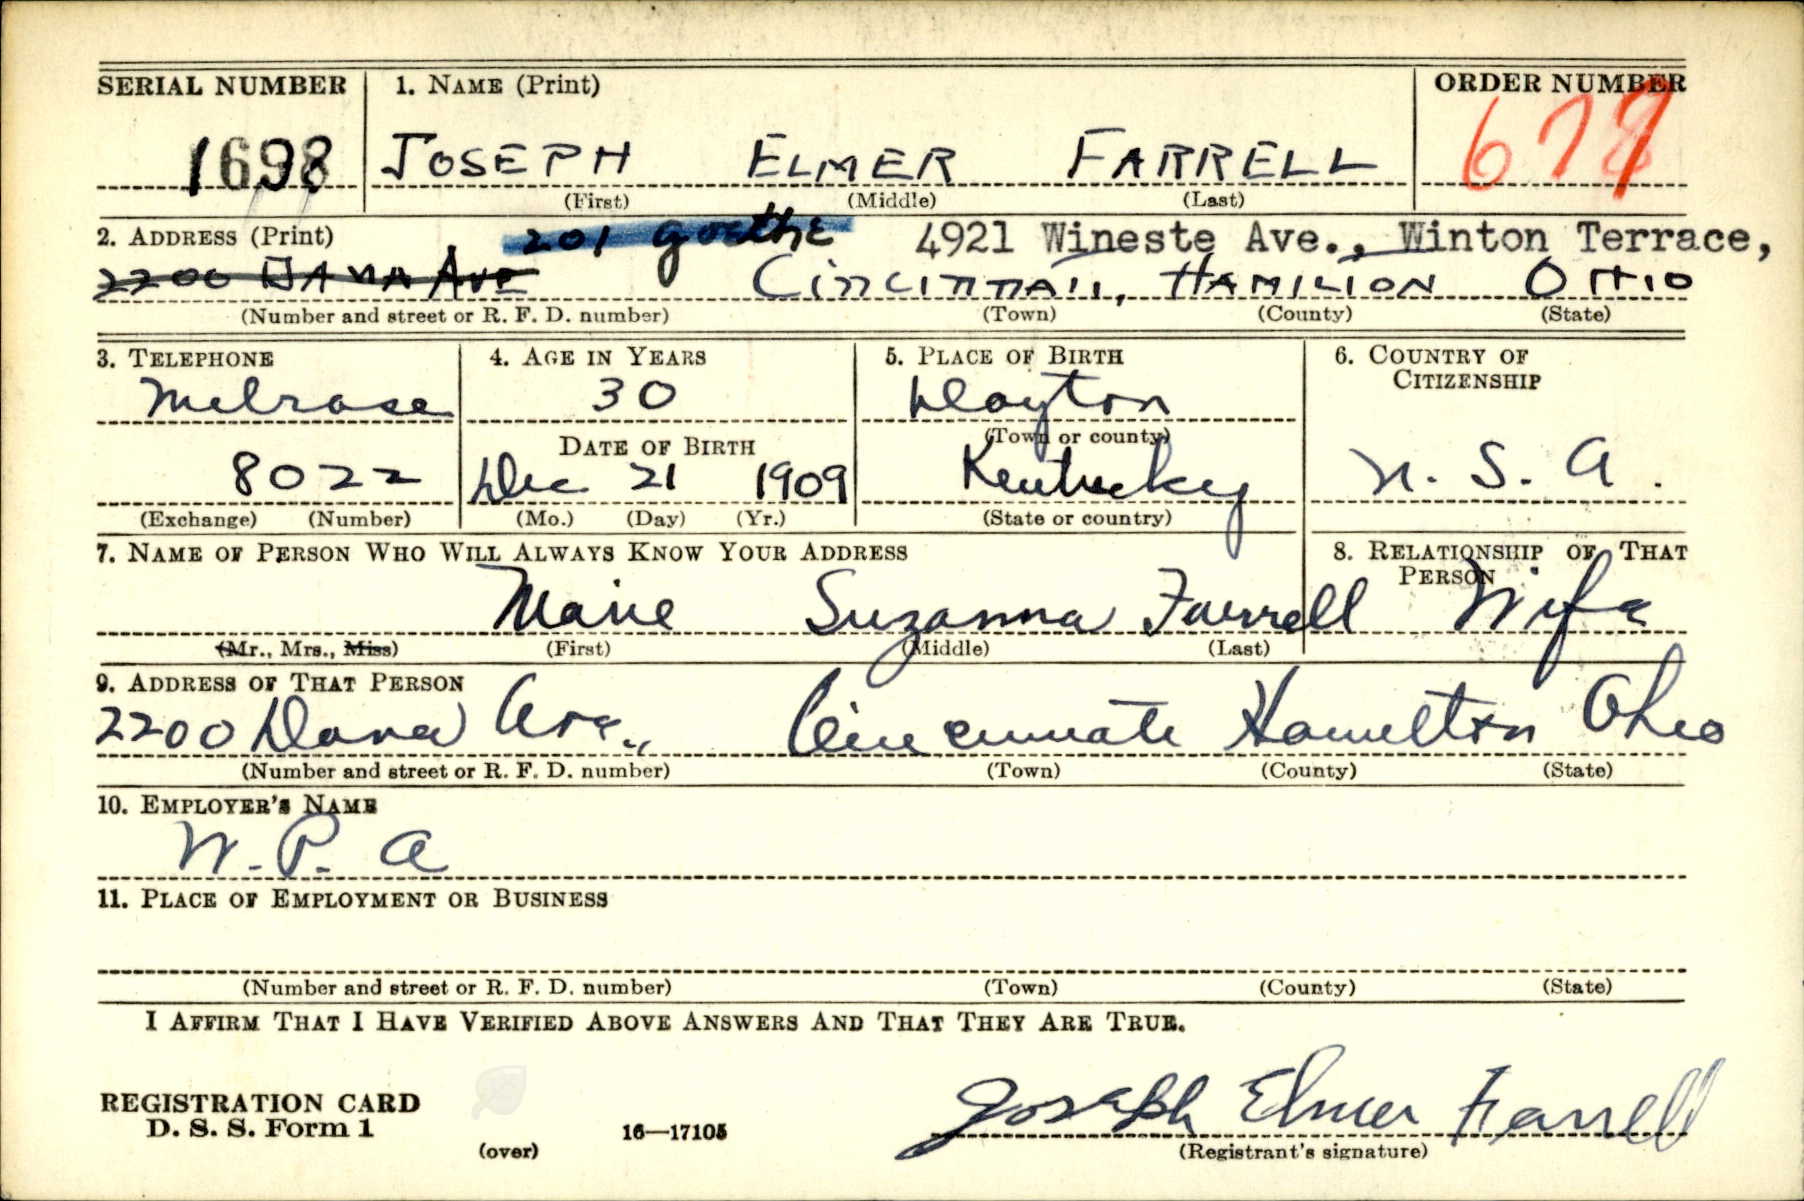 SERIAL NUMBER 1. NAME (Print) ORDER NUMBER
JOSEPH ELMER FARRELL
(First) (Middle) (Last)
2. ADDRESS (Print) 201 Goethe 4921 Wineste Ave., Winton Terrace,
2200 DANA AVE CINCINNATI, HAMILTON OHIO
(Number and street or R. F. D. number) (Town) (County) (State)
3. TELEPHONE 4. AGE IN YEARS 5. PLACE OF BIRTH 6. COUNTRY OF CITIZENSHIP
Melrose 30 Dayton
DATE OF BIRTH (Town or county)
8022 Dec 21 1909 Kentucky U. S. A.
(Exchange) (Number) (Mo.) (Day) (Yr.) (State or country)
7. NAME OF PERSON WHO WILL ALWAYS KNOW YOUR ADDRESS 8. RELATIONSHIP OF THAT PERSON
Marie Suzanna Farrell Wife
(Mr., Mrs., Miss) (First) (Middle) (Last)
9. ADDRESS OF THAT PERSON
2200 Dana Ave., Cincinnati Hamilton Ohio
(Number and street or R. F. D. number) (Town) (County) (State)
10. EMPLOYER'S NAME
W. P. A
11. PLACE OF EMPLOYMENT OR BUSINESS
(Number and street or R. F. D. number) (Town) (County) (State)
I AFFIRM THAT I HAVE VERIFIED ABOVE ANSWERS AND THAT THEY ARE TRUE.
REGISTRATION CARD
D. S. S. Form 1 (over) 16—17105
Joseph Elmer Farrell
(Registrant's signature)